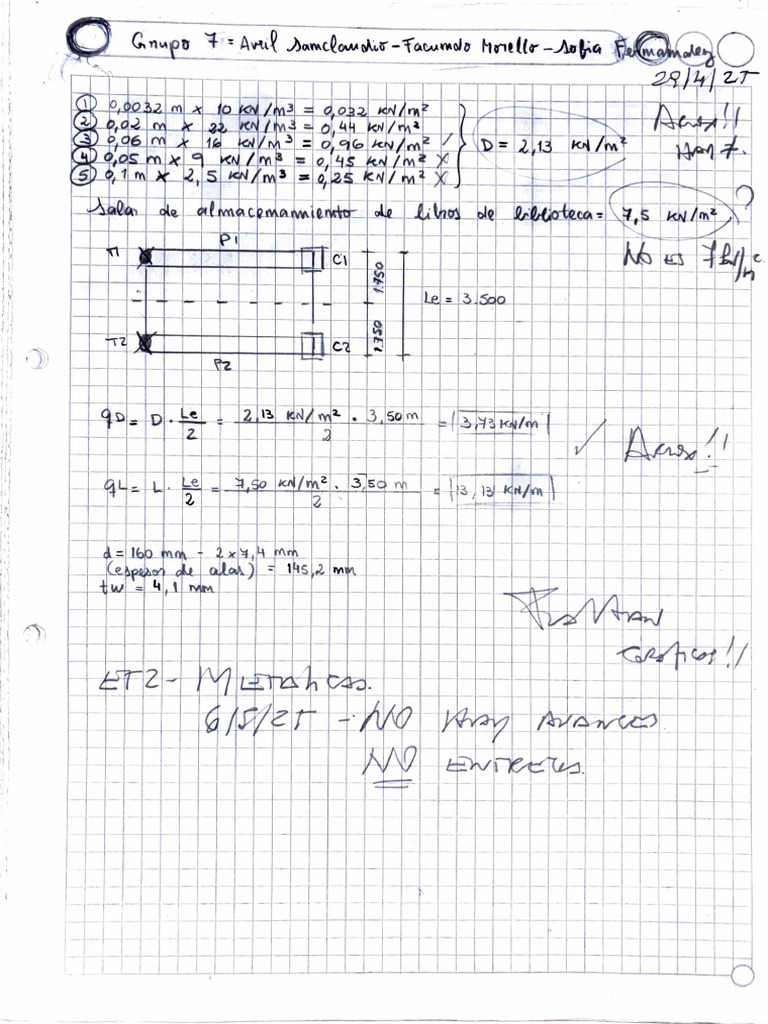 Grupo 7 = Avril Sanclaudio - Facundo Morello - Sofia Fernandez
29/4/25
① 0,0032 m x 10 KN/m³ = 0,032 KN/m²
② 0,02 m x 22 KN/m³ = 0,44 KN/m²
③ 0,06 m x 16 KN/m³ = 0,96 KN/m² ✓
④ 0,05 m x 9 KN/m³ = 0,45 KN/m² X
⑤ 0,1 m x 2,5 KN/m³ = 0,25 KN/m² X
D = 2,13 KN/m²
Hay 7.
Salas de almacenamiento de libros de biblioteca = 7,5 KN/m² ?
No es 7
T1 P1 C1
1.750
Le = 3.500
1.750
T2 P2 C2
qD = D · Le/2 = 2,13 KN/m² . 3,50 m / 2 = 3,73 KN/m ✓
qL = L · Le/2 = 7,50 KN/m² . 3,50 m / 2 = 13,13 KN/m
d = 160 mm - 2 x 7,4 mm
(espesor de alas) = 145,2 mm
tw = 4,1 mm
Faltan
Gráficos!!
ET2 - Metálicas.
6/5/25 - NO HAY AVANCES
NO ENTREGA.